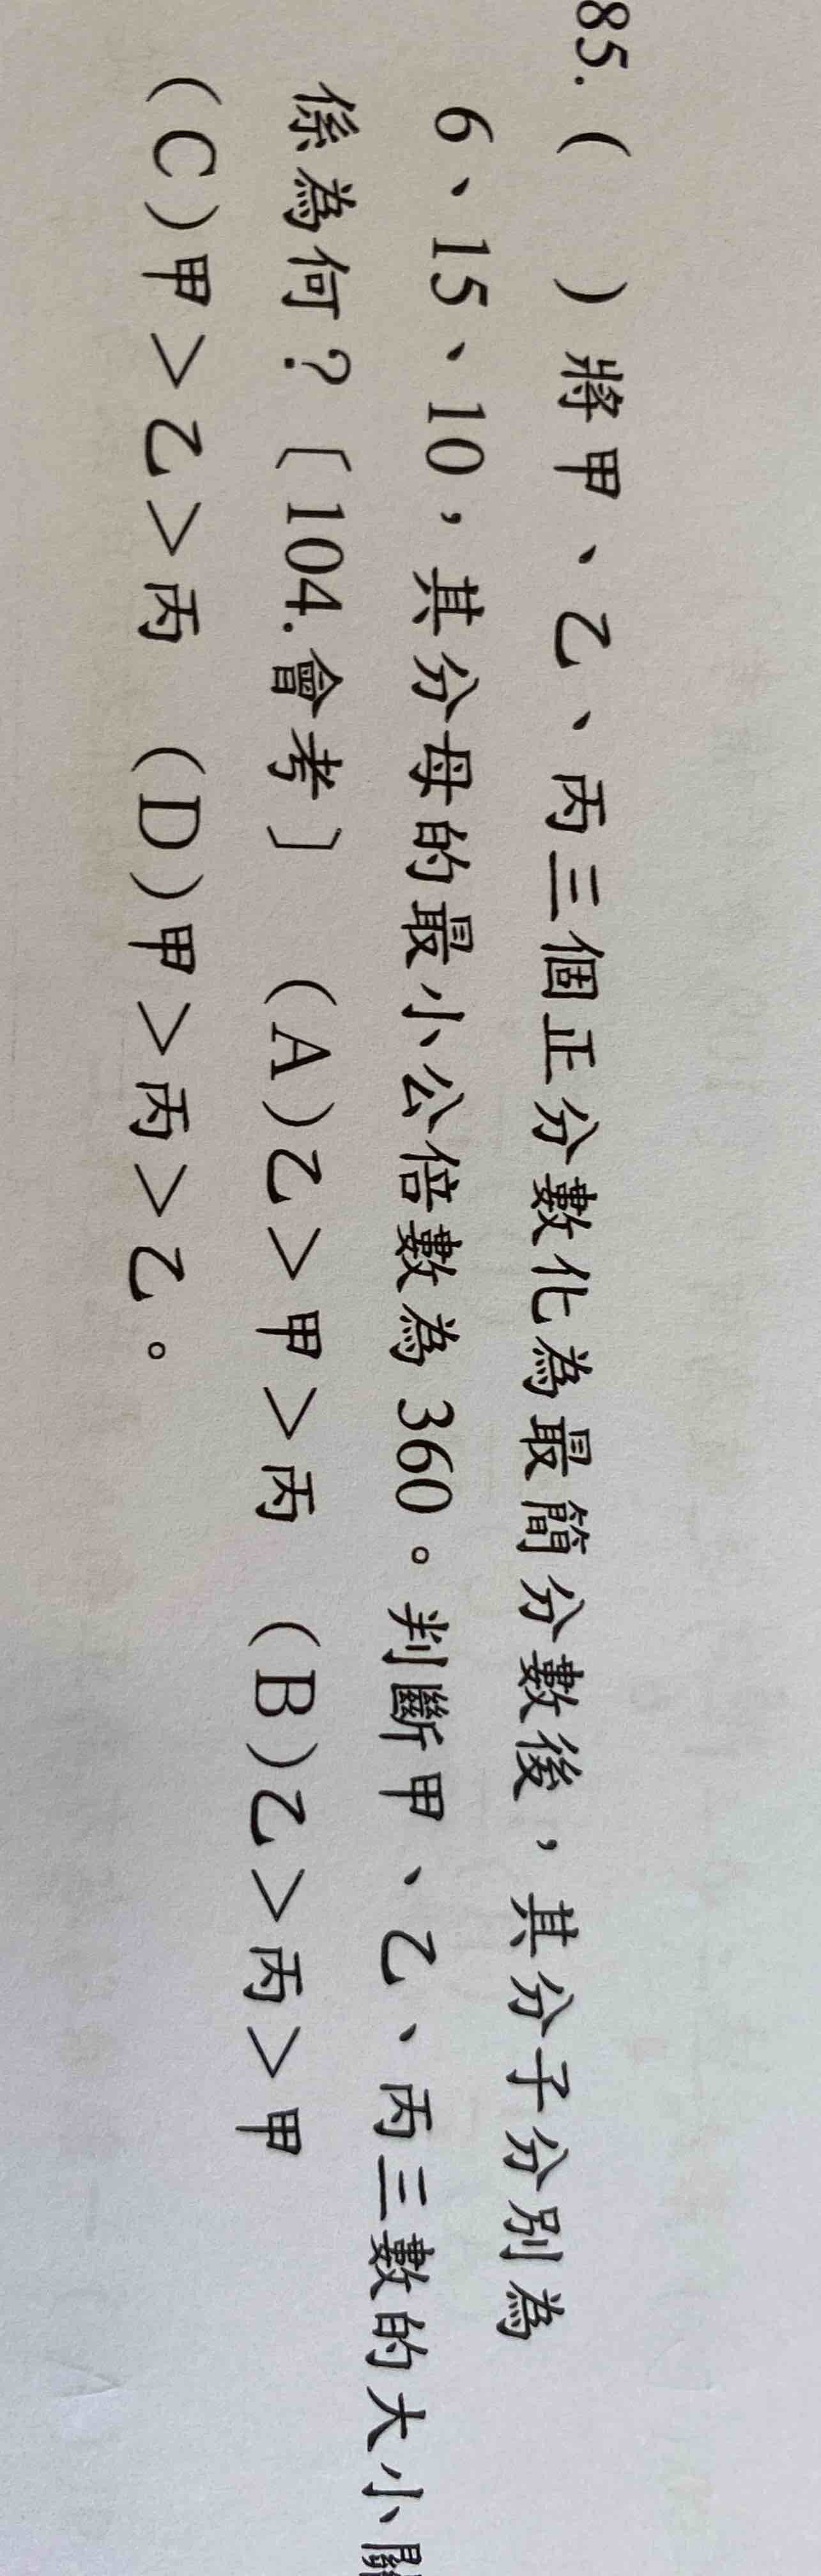 85.（　）將甲、乙、丙三個正分數化為最簡分數後，其分子分別為
6、15、10，其分母的最小公倍數為360。判斷甲、乙、丙三數的大小關
係為何？〔104.會考〕　(A)乙＞甲＞丙　(B)乙＞丙＞甲
(C)甲＞乙＞丙　(D)甲＞丙＞乙。